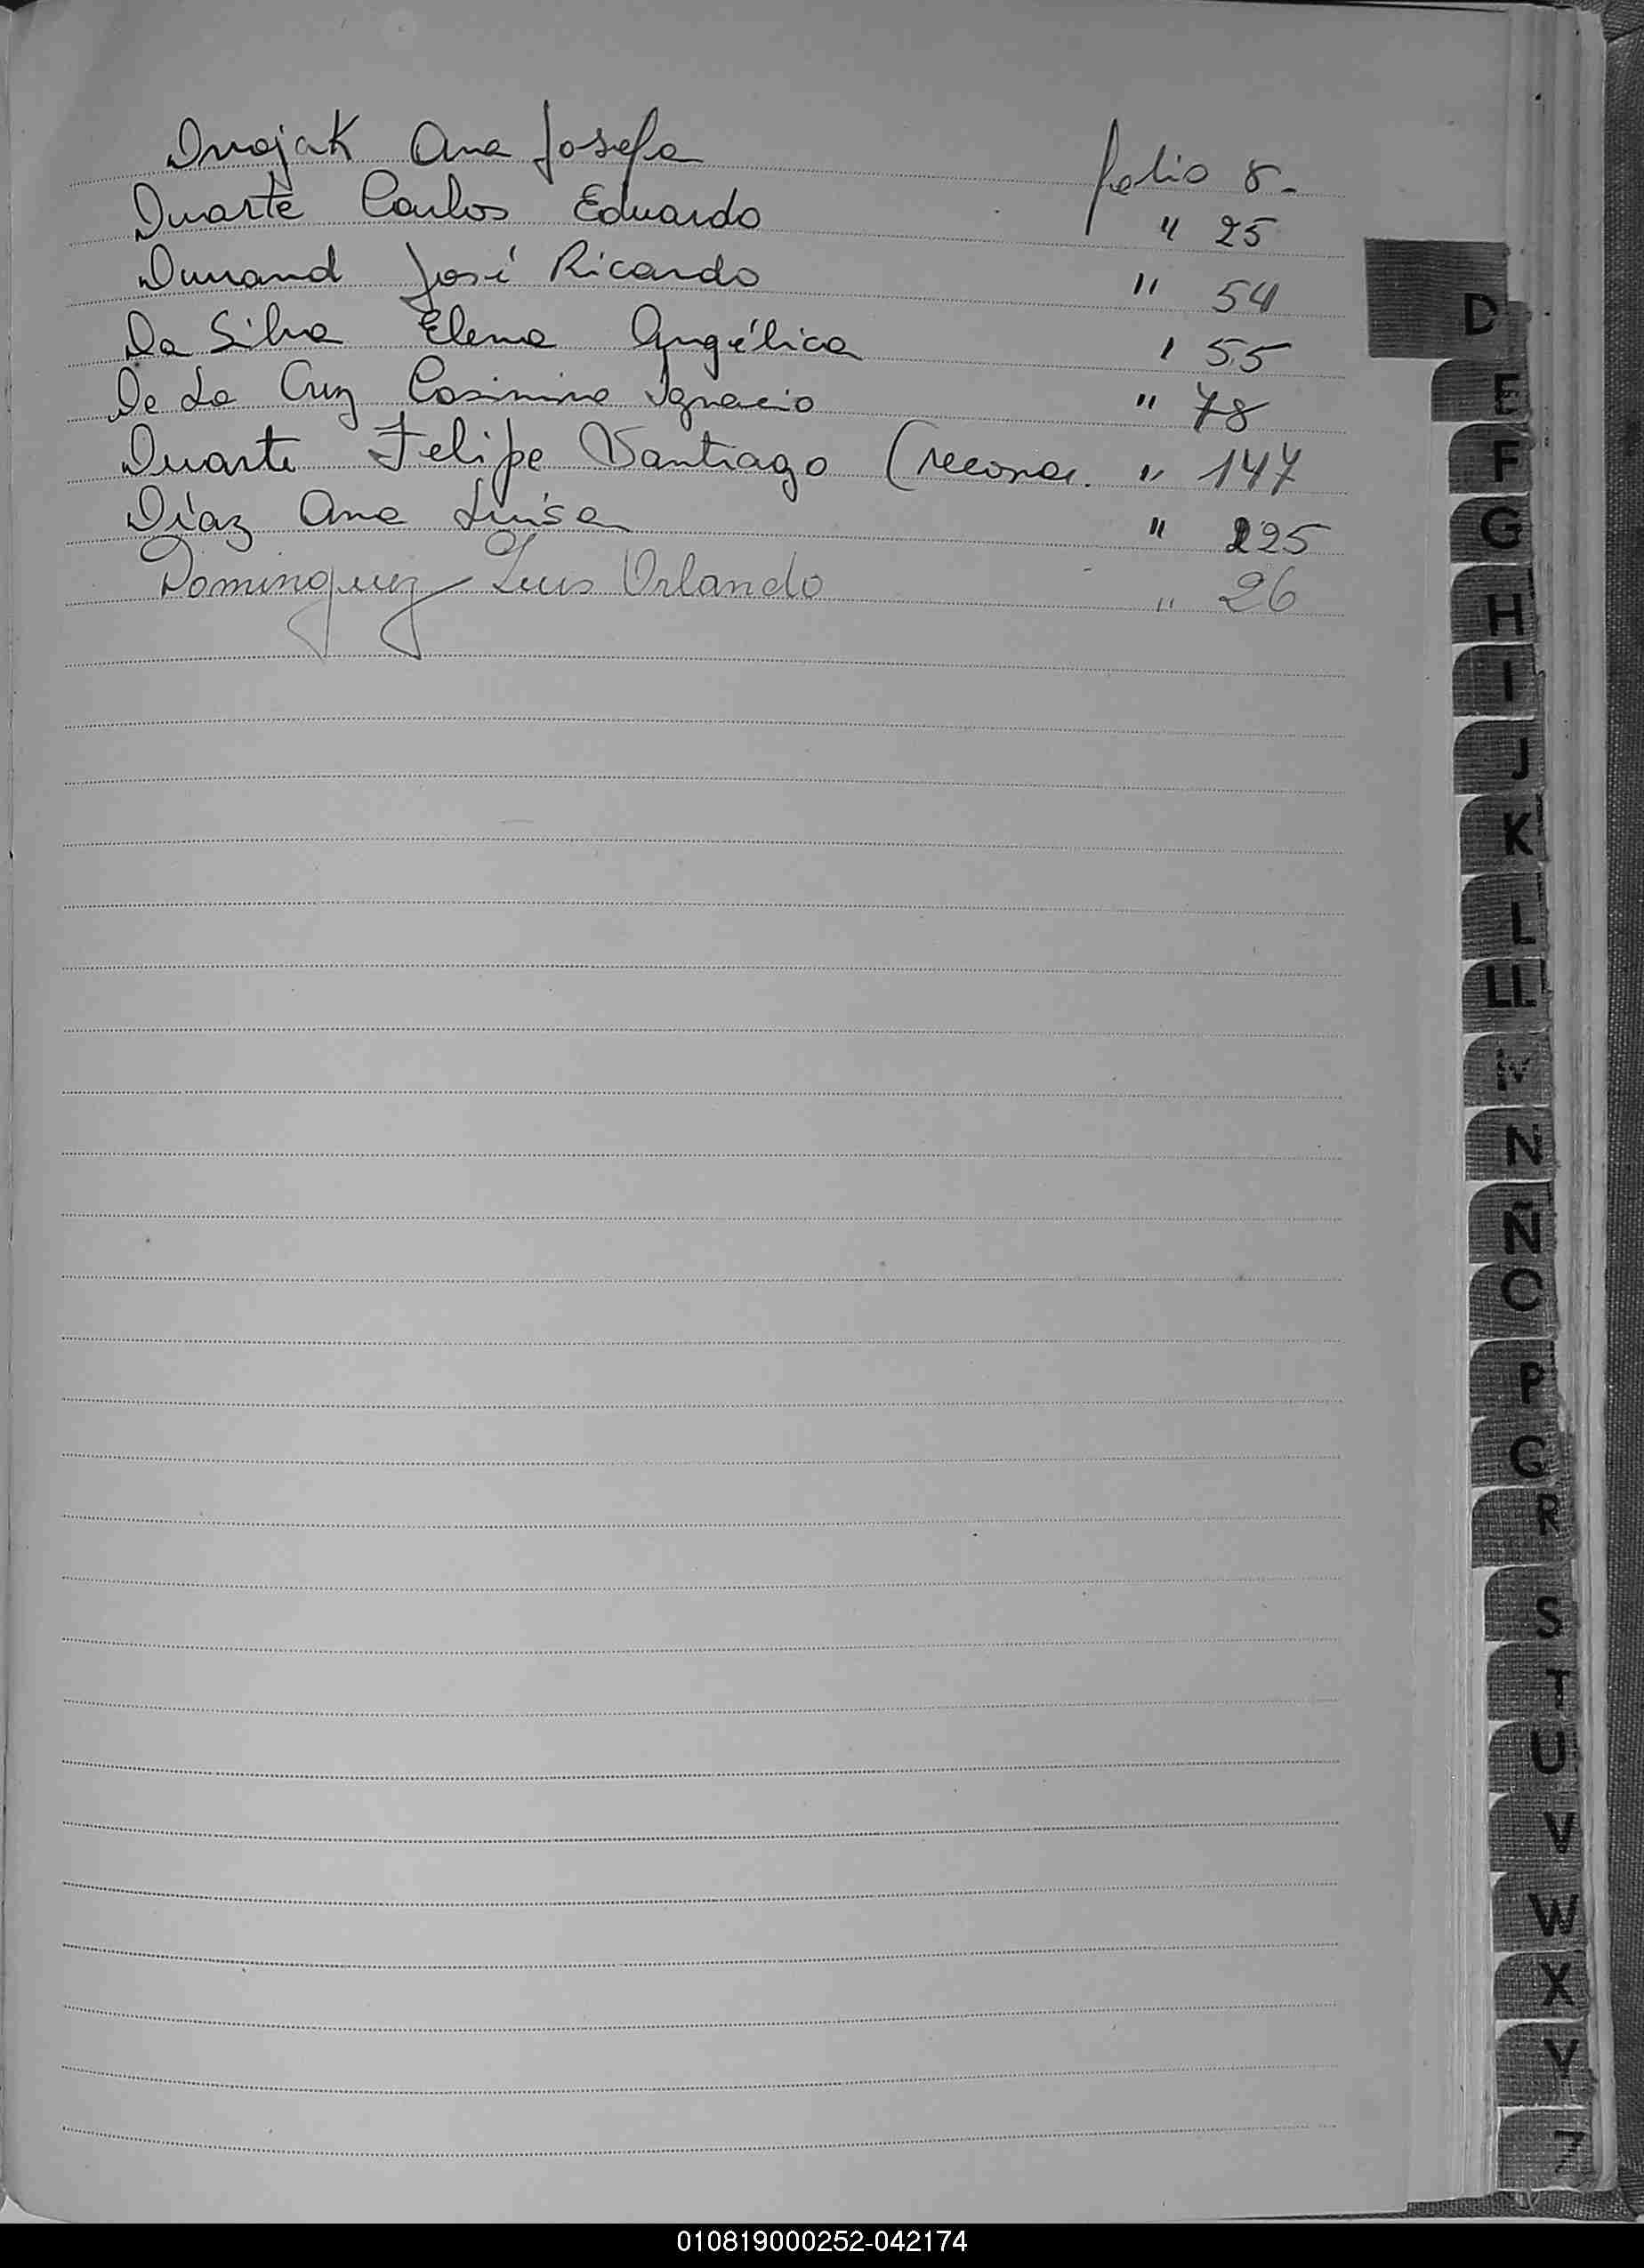 Dvojak Ana Josefa folio 8.-
Duarte Carlos Eduardo " 25
Durand José Ricardo " 54
Da Silva Elena Angélica " 55
De La Cruz Casimiro Ignacio " 78
Duarte Felipe Santiago (reconoc. " 147
Díaz Ana Luisa " 225
Dominguez Luis Orlando " 26
D
E
F
G
H
I
J
K
L
LL
N
Ñ
O
P
Q
R
S
T
U
V
W
X
Y
Z
010819000252-042174